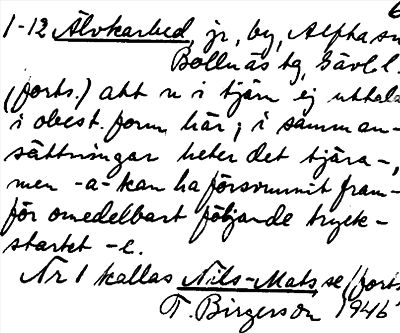 6
1-12 Älvkarhed, jr, by, Alfta sn
Bollnäs tg, Gävl. l.
(forts.) att n i tjärn ej uttala
i obest. form här; i samman-
sättningar heter det tjära-,
men -a- kan ha försvunnit fram-
för omedelbart följande tryck-
starkt -e.
Nr 1 kallas Nils-Mats se (forts
T. Birgerson 1946